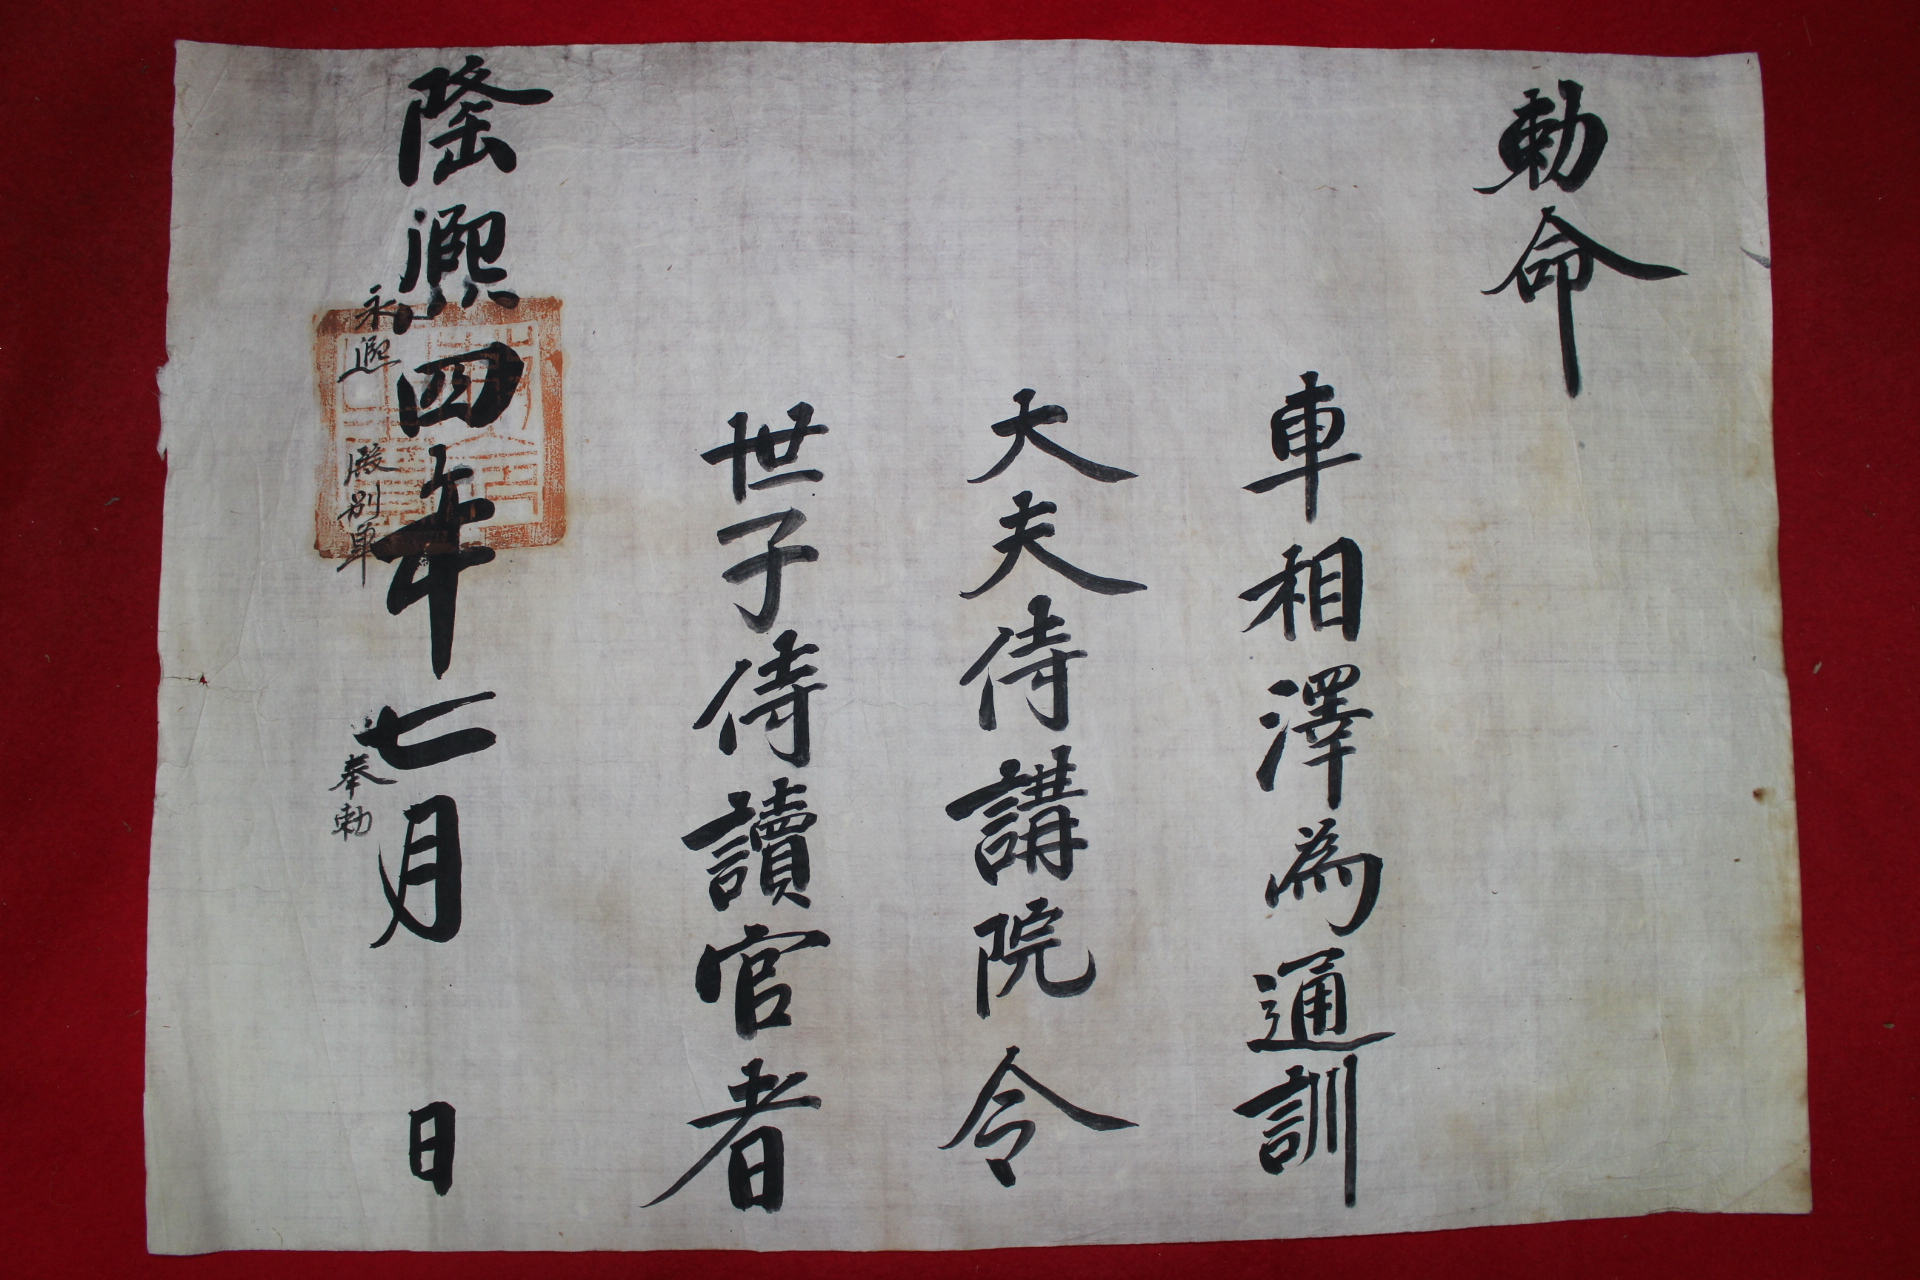 勅命
車相澤為通訓
大夫侍講院令
世子侍讀官者
隆熙四年七月 日
永熙殿別單
奉勅